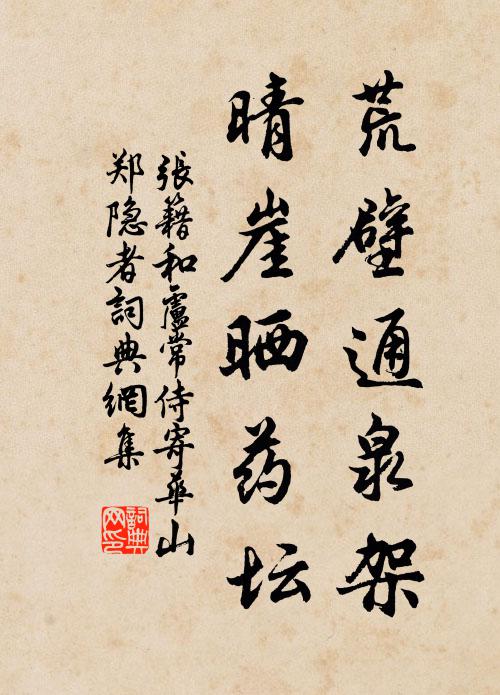 荒壁通泉架
晴崖晒药坛
張籍和盧常侍寄華山
郑隐者詞典網集
詞典
网印